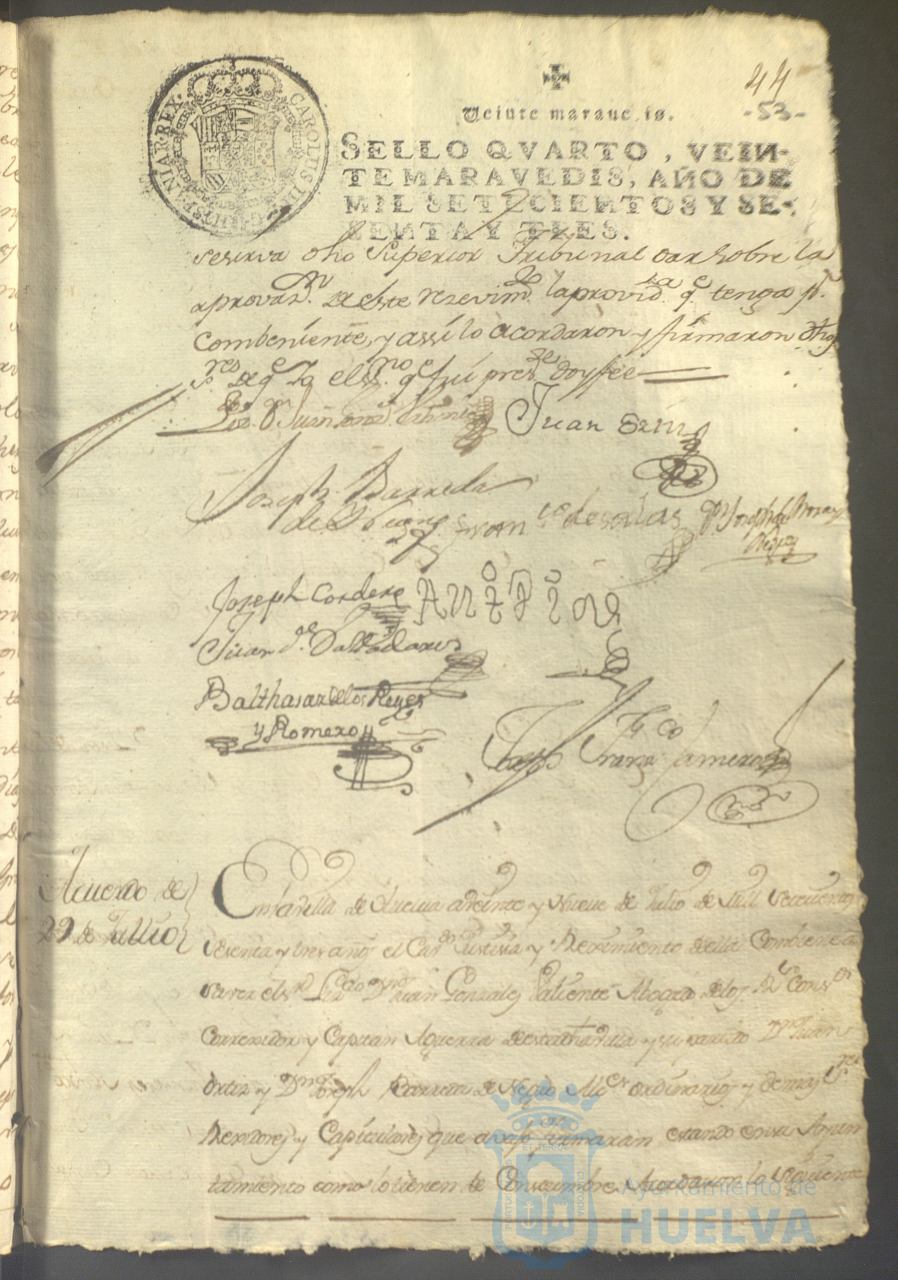 44
-53-
CAROLUS III D G HISPANIAR REX
Veinte maraue is.
SELLO QVARTO, VEIN-
TE MARAVEDIS, AÑO DE
MIL SETECIENTOS Y SE-
SENTA Y TRES.
reserva dho Superior Tribunal dar sobre la
aprovazn. de este rezevimto. la provida. qe. tenga pr.
combeniente, y assi lo acordaron y firmaron dhos
sres de qe. Yo el essno. qe. fui preste. doy fee
Juan Ortiz
Joseph Barreda
Franco. de Salas
Joseph Cordero
Juan de Valladares
Balthasar de los Reyes
y Romero
Joseph Franco. Camero
Acuerdo de
29 de Jullio
En la Villa de Huelva a veinte y Nueve de Julio de Mill Setecientos
Sesenta y tres años el Cavdo. Justicia y Reximiento de ella Combiene a
saver el sr. Lizdo. Dn. Juan Gonzalez Valiente Abogado de los Rs. Conss.
Correxidor y Capitan A guerra de esta dha Villa y su partido Dn. Juan
Ortiz y Dn. Joseph Barreda de Alces. ordinarios y demas sres.
Rexidores y Capitulares que avajo firmaran estando en su Ayun
tamiento como lo tienen de Costumbre Acordaron lo siguiente
Ayuntamiento de
HUELVA